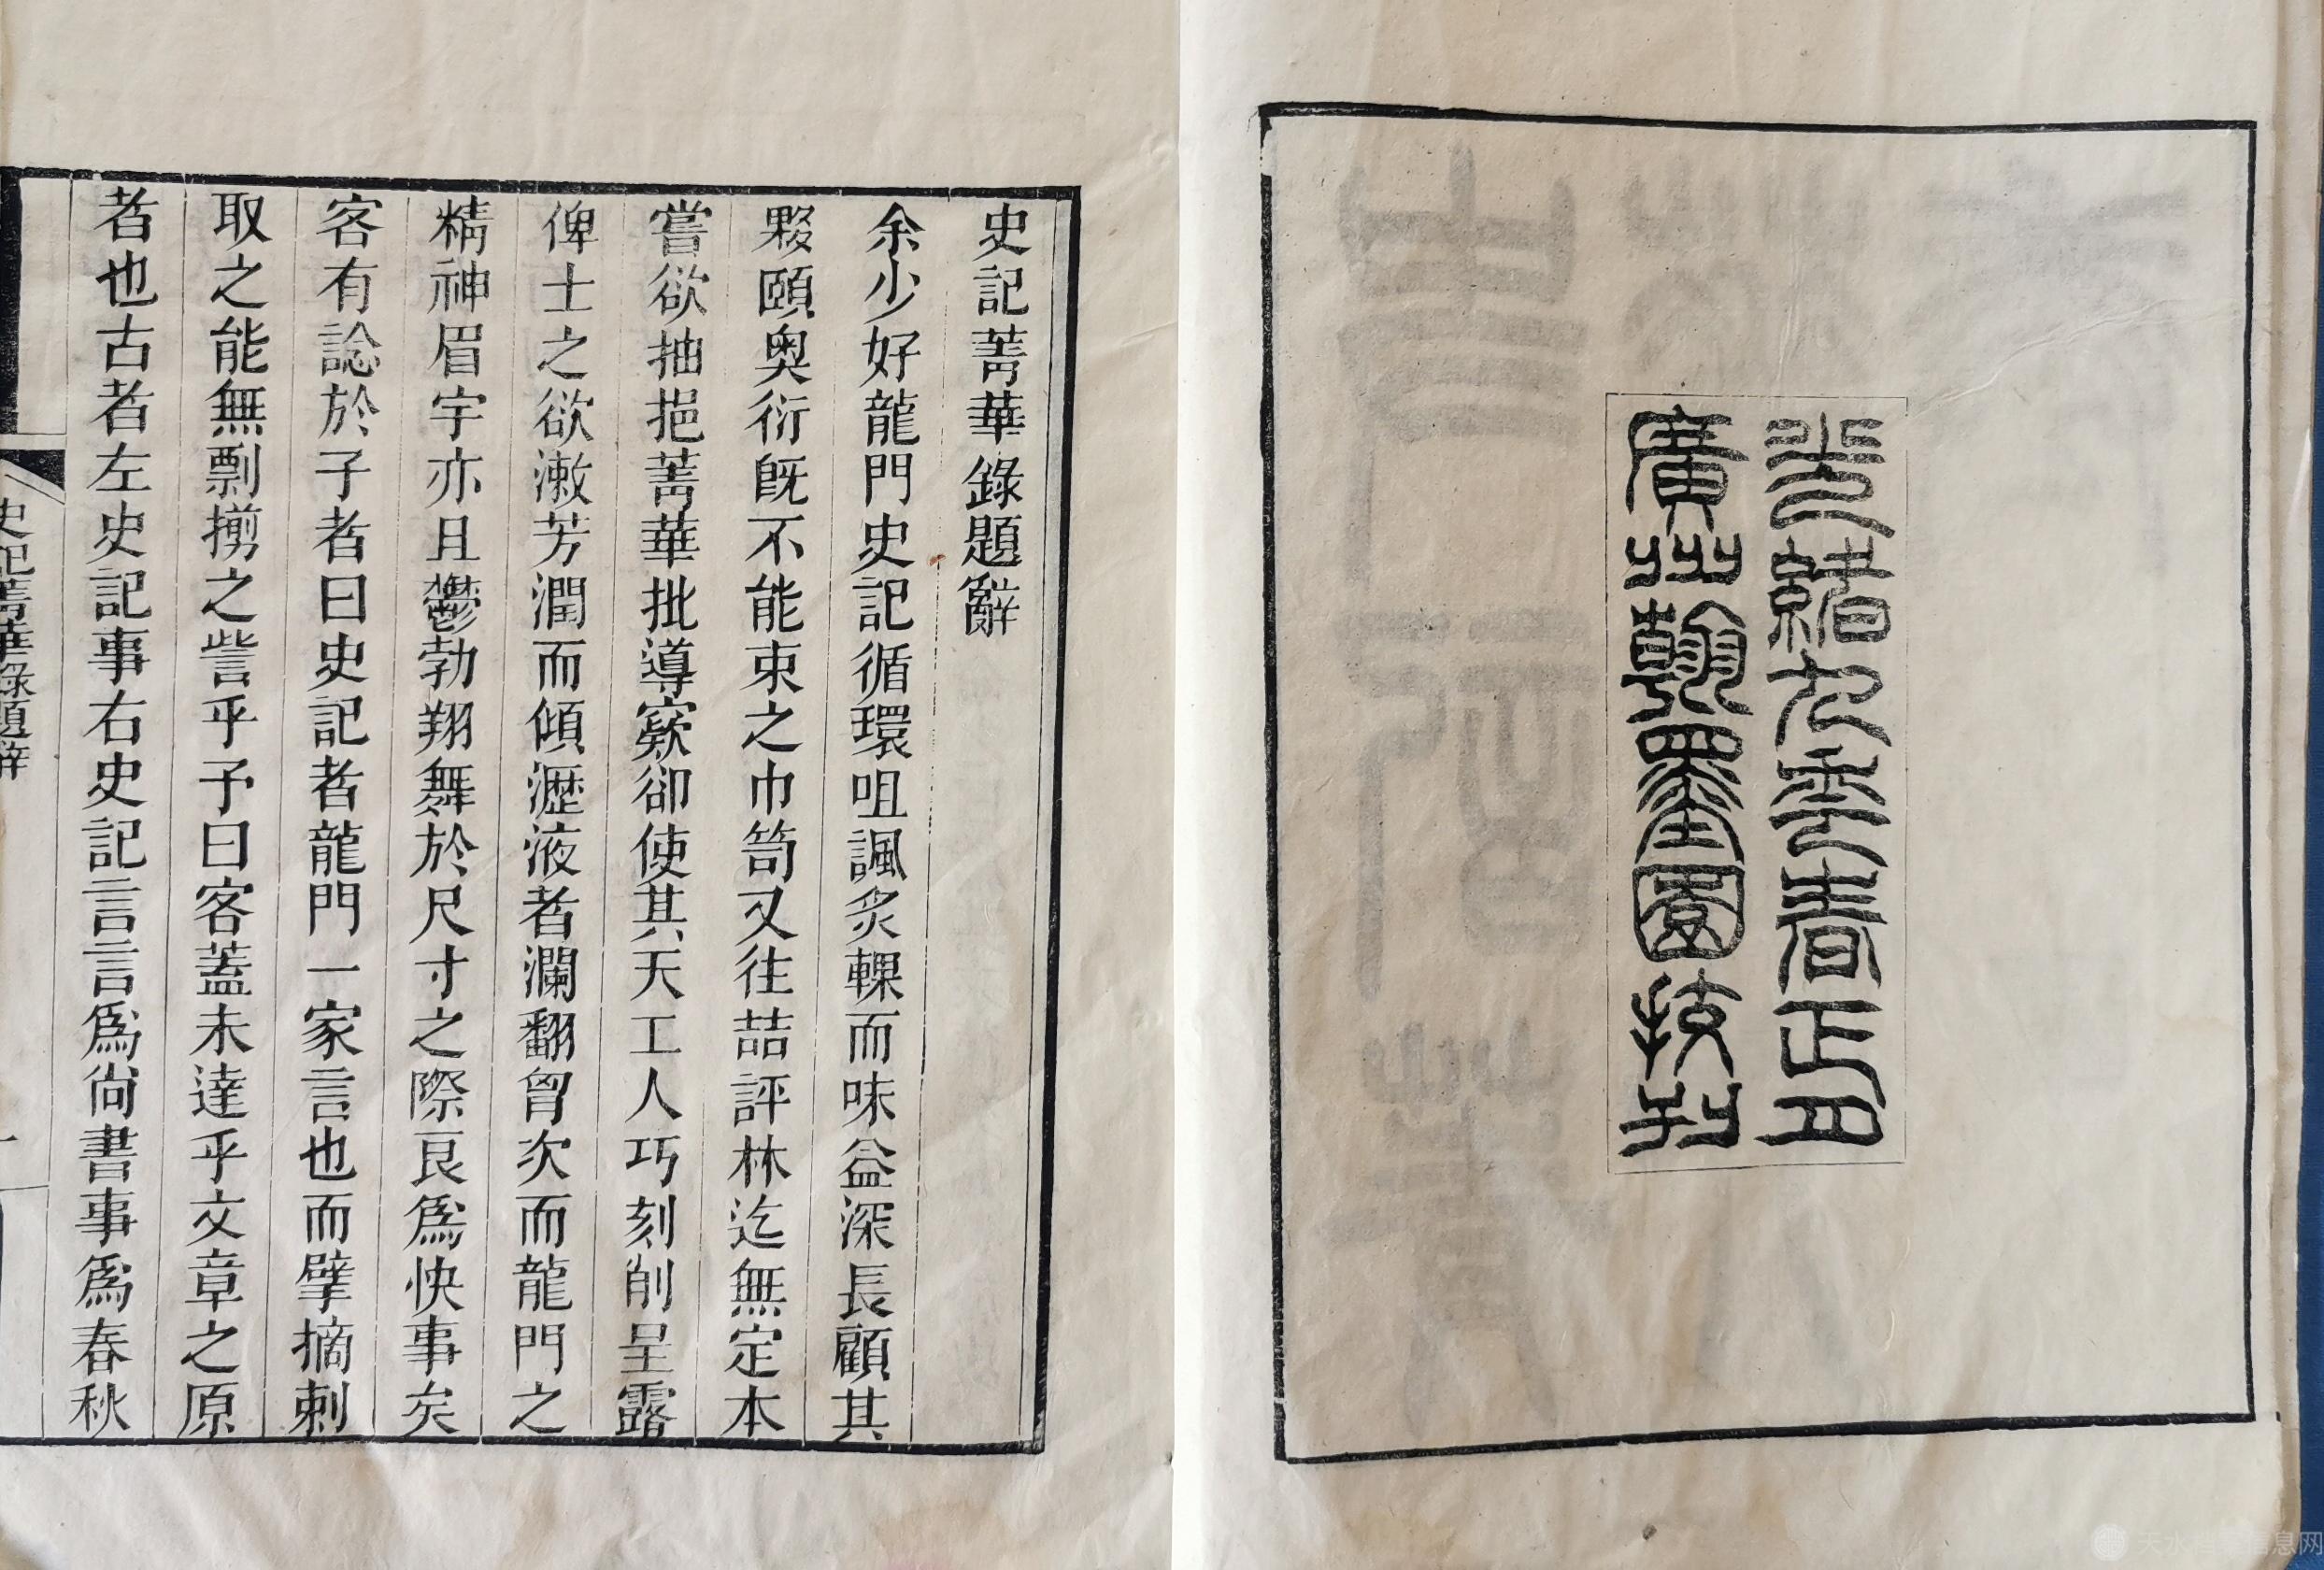 光緒九年春正四
廣州翰墨園校刊
史記菁華錄題辭
余少好龍門史記循環咀諷炙輠而味益深長顧其
夥頤奥衍既不能束之巾笥又往喆評林迄無定本
嘗欲抽挹菁華批導窾卻使其天工人巧刻削呈露
俾士之欲漱芳潤而傾瀝液者瀾翻胷次而龍門之
精神眉宇亦且鬱勃翔舞於尺寸之際良爲快事矣
客有諗於予者曰史記者龍門一家言也而擘摘剌
取之能無剽揃之訾乎予曰客蓋未達乎文章之原
者也古者左史記事右史記言言爲尙書事爲春秋
史記菁華錄題辭
一
天水 信息网